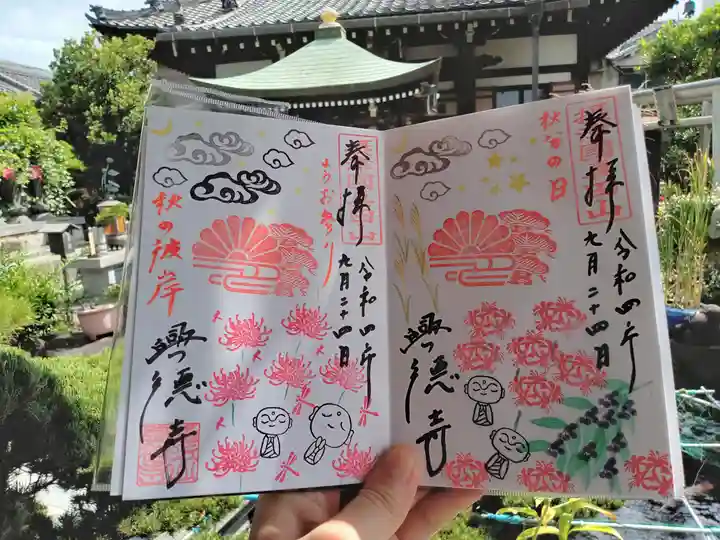 奉拝
令和四年
九月二十四日
秋分の日
興徳寺
奉拝
令和四年
九月二十四日
ようお参り
秋の彼岸
興徳寺